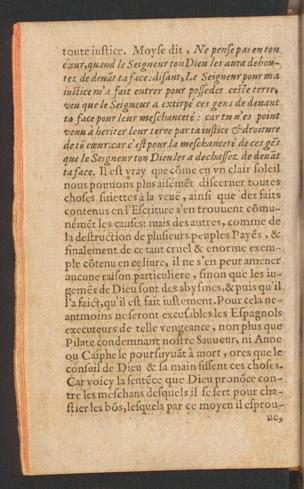 toute iustice. Moyse dit, Ne pense pas en ton
cœur, quand le Seigneur ton Dieu les aura debou-
tez de deuãt ta face: disant, Le Seigneur pour ma
iustice m'a fait entrer pour posseder ceste terre,
veu que le Seigneur a extirpé ces gens de deuant
ta face pour leur meschanceté: car tu n'es point
venu à heriter leur terre par ta iustice & droiture
de tõ cœur: car c'est pour la meschanceté de ces gẽs
que le Seigneur ton Dieu les a dechassez de deuãt
ta face. Il est vray que cõme en vn clair soleil
nous pouuons plus aisémẽt discerner toutes
choses suiettes à la veuë, ainsi que des faits
contenus en l'Escriture s'en trouuent cõmu-
némẽt les causes: mais des autres, comme de
la destruction de plusieurs peuples Payẽs, &
finalement de ce tant cruel & enorme exem-
ple cõtenu en ce liure, il ne s'en peut amener
aucune raison particuliere, sinon que les iu-
gemẽs de Dieu sont des abysmes, & puis qu'il
l'a faict, qu'il est fait iustement. Pour cela ne-
antmoins ne seront excusables les Espagnols
executeurs de telle vengeance, non plus que
Pilate condemnant nostre Sauueur, ni Anne
ou Caiphe le poursuyuãt à mort, ores que le
conseil de Dieu & sa main fissent ces choses.
Car voicy la sentẽce que Dieu pronõce con-
tre les meschans desquels il se sert pour cha-
stier les bõs, lesquels par ce moyen il esprou-
ue,